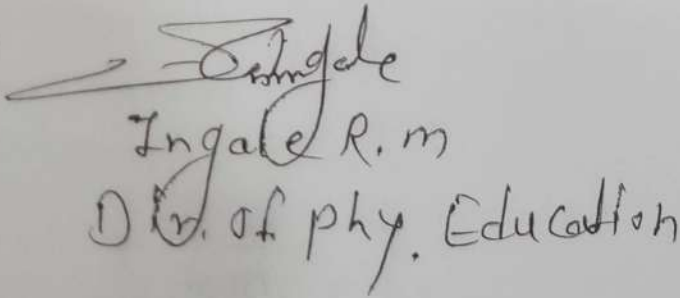 Ingale R. m
Dir. of phy. Education